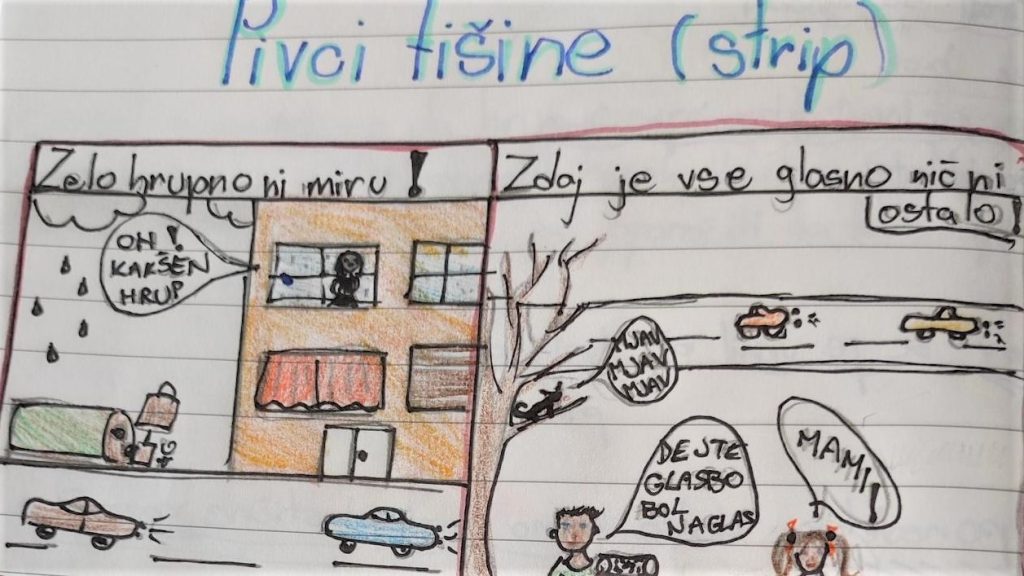 Pivci tišine (strip)
Zelo hrupno ni miru!
OH!
KAKŠEN
HRUP
Zdaj je vse glasno nič ni
ostalo!
MJAV
MJAV
MJAV
DEJTE
GLASBO
BOL
NAGLAS
MAMI!